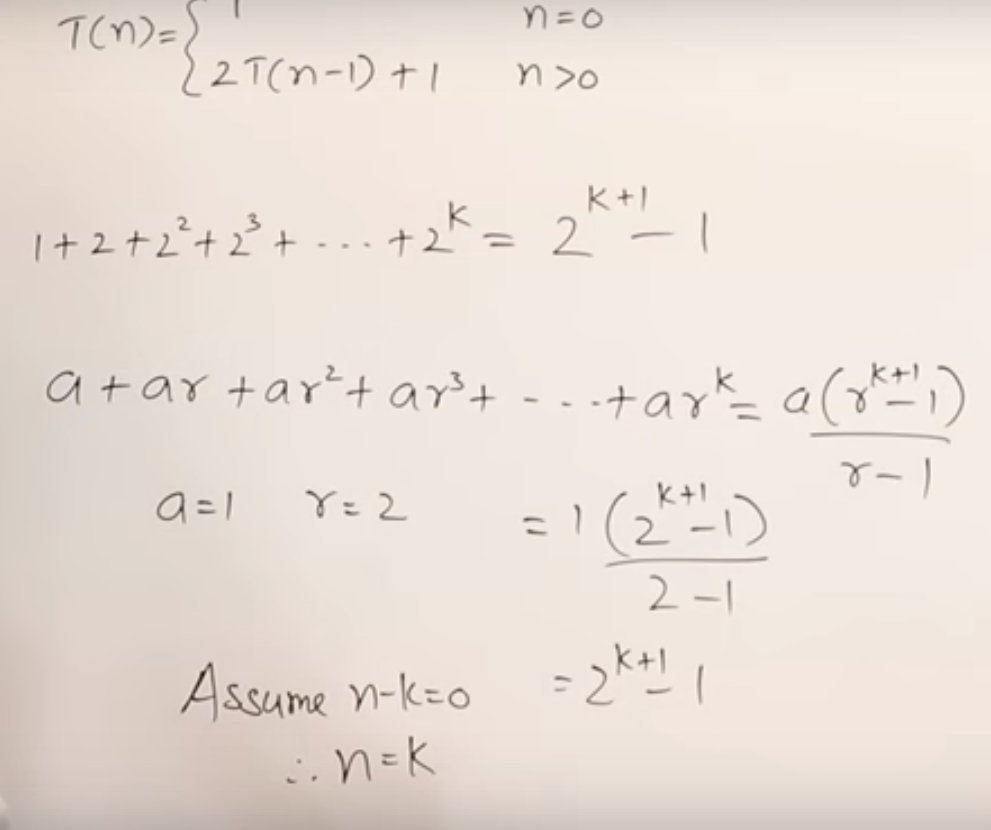 T(n)= { 1 n=0
2T(n-1)+1 n>0
1+2+2²+2³+...+2^k = 2^(k+1) - 1
a+ar+ar²+ar³+---+ar^k = a(r^(k+1)-1)
r-1
a=1 r=2 = 1(2^(k+1)-1)
2-1
Assume n-k=0 = 2^(k+1)-1
∴ n=k